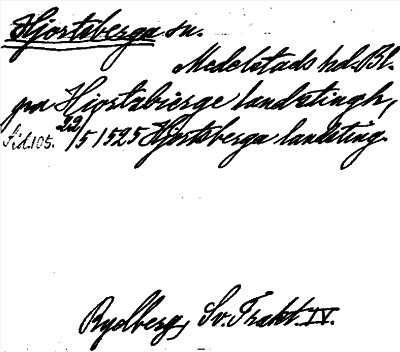 Hjortsberga sn.
Medelstads hd. Bl.
paa Hjortsbierge landztingh,
Sid. 105. 22/5 1525 Hjortsberga landsting.
Rydberg, Sv. Trakt. IV.